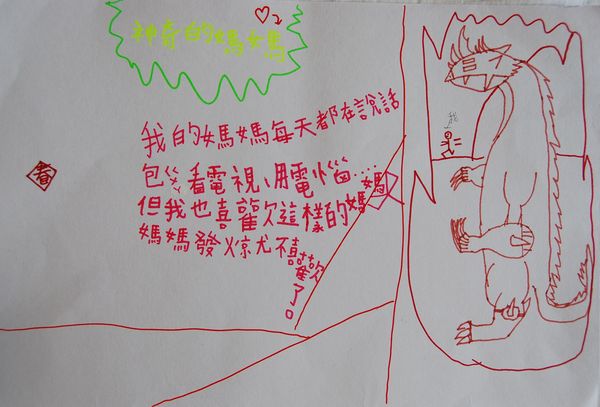 神奇的媽媽
我的媽媽每天都在說話
包 看電視、用電惱……
但我也喜歡這樣的媽媽
媽媽發火就不喜歡了。
春
我